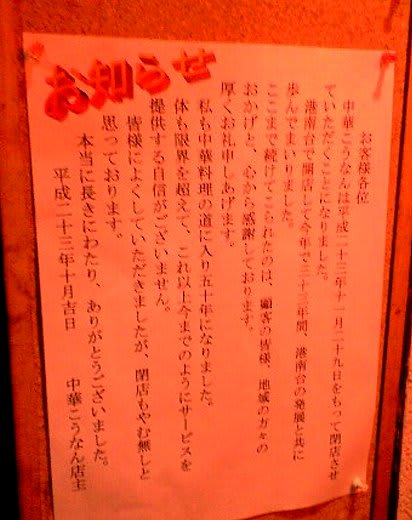 お知らせ
お客様各位
中華こうなんは平成二十三年十一月二十九日をもって閉店させ
ていただくことになりました。
港南台で開店して今年で三十三年間、港南台の発展と共に
歩んでまいりました。
ここまで続けてこられたのは、顧客の皆様、地域の方々の
おかげと、心から感謝しております。
厚くお礼申しあげます。
私も中華料理の道に入り五十年になりました。
体も限界を超えて、これ以上今までのようにサービスを
提供する自信がございません。
皆様によくしていただきましたが、閉店もやむ無しと
思っております。
本当に長きにわたり、ありがとうございました。
平成二十三年十月吉日
中華こうなん店主